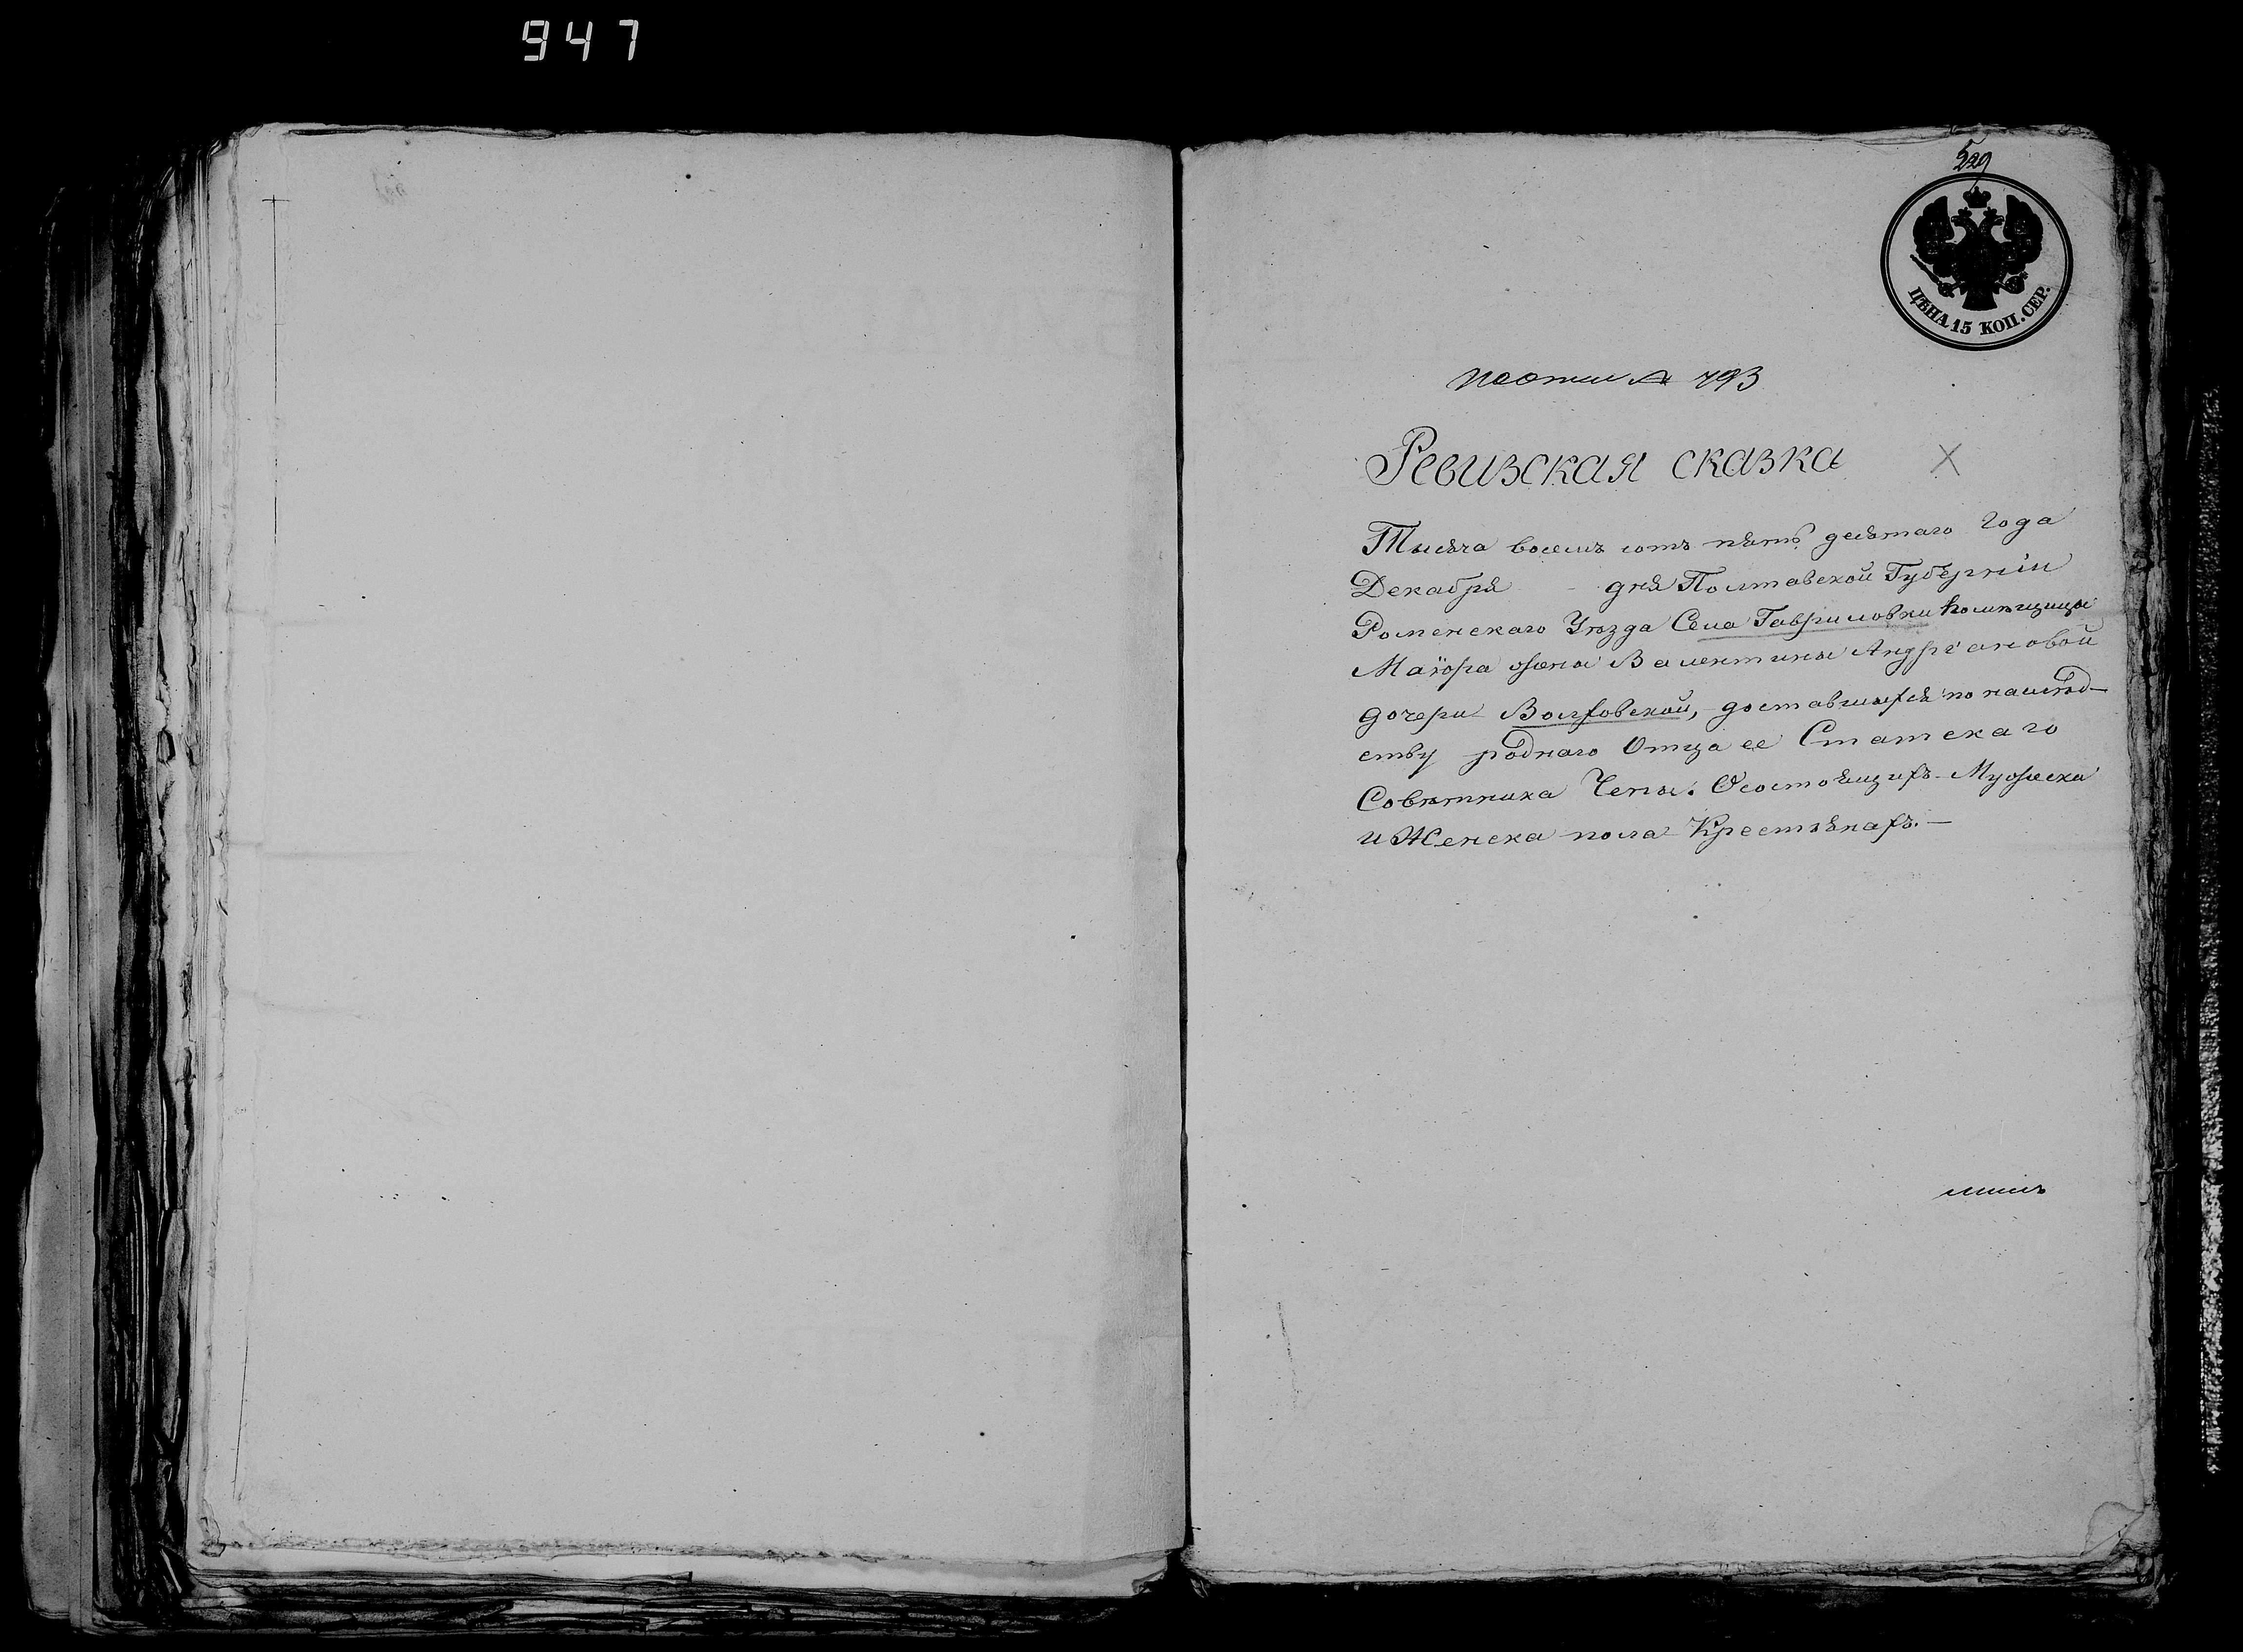 947
529
ЦѢНА 15 КОП. СЕР.
по описи № 793
Ревизская сказка
Тысяча восемъ сотъ пять десятаго Года
Декабря дня Полтавской Губерніи
Роменскаго Уѣзда Села Гавриловки помѣщицы
Маіора жены Валентины Андріановой
дочери Волховской, доставшихся по наслѣд-
ству роднаго Отца ее Статскаго
Совѣтника Чепы. О состоящихъ Мужеска
и Женска пола Крестьянахъ.—